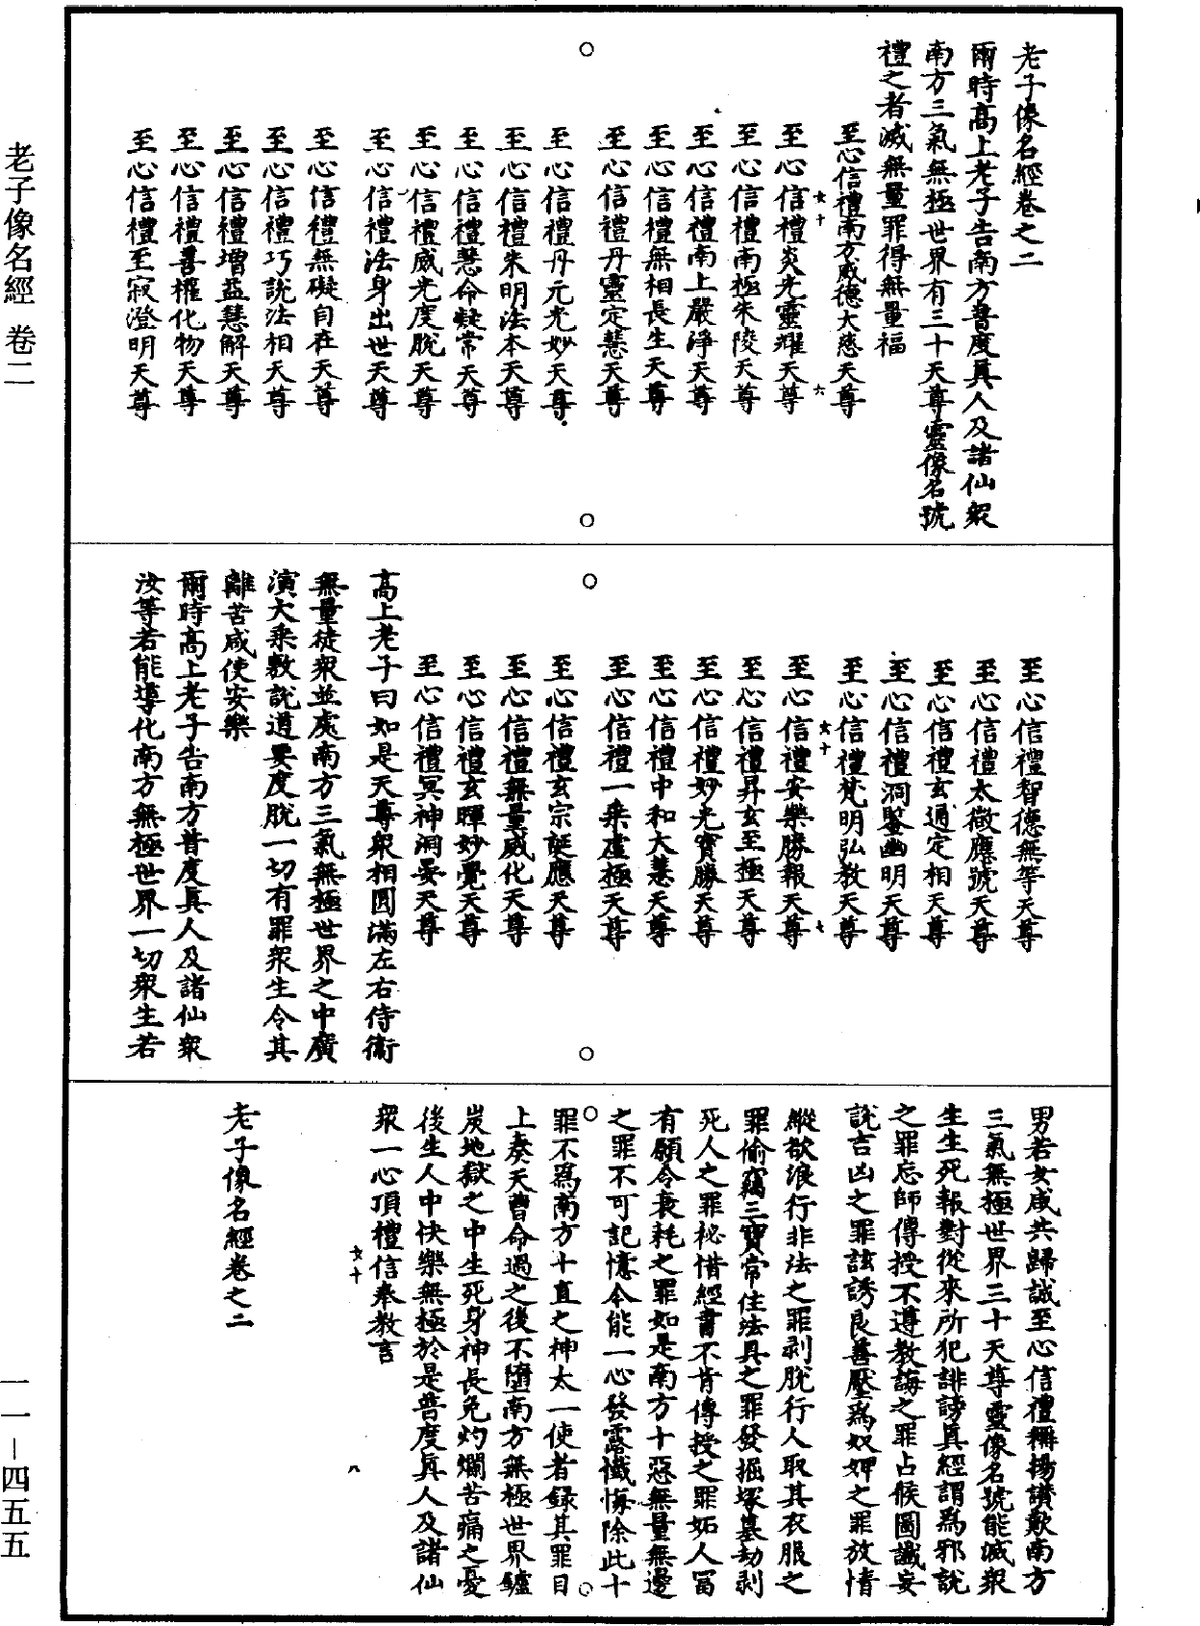 老子像名經卷之二
爾時高上老子告南方普度眞人及諸仙衆
南方三氣無極世界有三十天尊靈像名號
禮之者滅無量罪得無量福
至心信禮南方威德大慈天尊
至心信禮炎光靈耀天尊
至心信禮南極朱陵天尊
至心信禮南上嚴淨天尊
至心信禮無相長生天尊
至心信禮丹靈定慧天尊
至心信禮丹元光妙天尊
至心信禮朱明法本天尊
至心信禮慧命凝常天尊
至心信禮威光度脫天尊
至心信禮法身出世天尊
至心信禮無礙自在天尊
至心信禮巧說法相天尊
至心信禮增益慧解天尊
至心信禮善權化物天尊
至心信禮至寂澄明天尊
至心信禮智德無等天尊
至心信禮太微應號天尊
至心信禮玄通定相天尊
至心信禮洞鑒幽明天尊
至心信禮梵明弘教天尊
至心信禮安樂勝報天尊
至心信禮昇玄至極天尊
至心信禮妙光寶勝天尊
至心信禮中和大慧天尊
至心信禮一乘虛極天尊
至心信禮玄宗誕應天尊
至心信禮無量威化天尊
至心信禮玄暉妙覺天尊
至心信禮冥神洞晏天尊
高上老子曰如是天尊衆相圓滿左右侍衞
無量徒衆並處南方三氣無極世界之中廣
演大乘敷說道要度脫一切有罪衆生令其
離苦咸使安樂
爾時高上老子告南方普度眞人及諸仙衆
汝等若能導化南方無極世界一切衆生若
男若女咸共歸誠至心信禮稱揚讚歎南方
三氣無極世界三十天尊靈像名號能滅衆
生生死報對從來所犯誹謗眞經謂爲邪說
之罪忘師傳授不遵教誨之罪占候圖讖妄
說吉凶之罪詃誘良善壓爲奴婢之罪放情
縱欲浪行非法之罪剥脫行人取其衣服之
罪偷竊三寶常住法具之罪發掘塚墓劫剥
死人之罪祕惜經書不肯傳授之罪妬人富
有願令衰耗之罪如是南方十惡無量無邊
之罪不可記憶今能一心發露懺悔除此十
罪不爲南方十直之神太一使者錄其罪目
上奏天曹命過之後不墮南方無極世界鑪
炭地獄之中生死身神長免灼爛苦痛之憂
後生人中快樂無極於是普度眞人及諸仙
衆一心頂禮信奉教言
老子像名經卷之二
老子像名經 卷二
一一—四五五